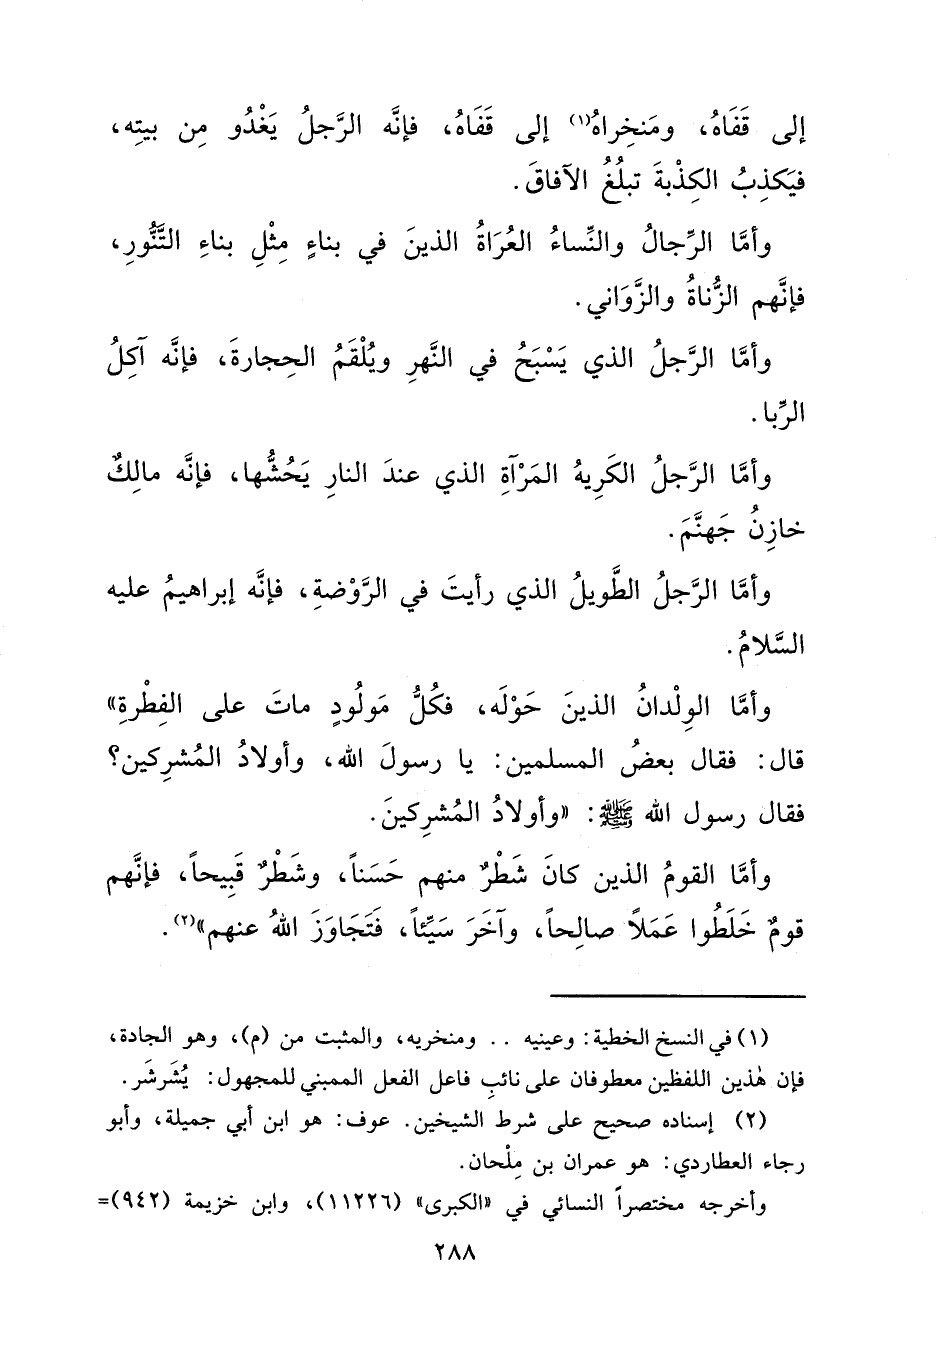 إلى قَفَاهُ، ومَنخِراهُ(١) إلى قَفَاهُ، فإنَّه الرَّجلُ يَغْدُو مِن بيتِه،
فيَكذِبُ الكِذْبةَ تبلُغُ الآفاقَ.
وأمَّا الرِّجالُ والنِّساءُ العُرَاةُ الذينَ في بناءٍ مِثْلِ بناءِ التَّنُّورِ،
فإنَّهم الزُّناةُ والزَّوَاني.
وأمَّا الرَّجلُ الذي يَسْبَحُ في النَّهرِ ويُلْقَمُ الحِجارةَ، فإنَّه آكِلُ
الرِّبا.
وأمَّا الرَّجلُ الكَرِيهُ المَرْآةِ الذي عندَ النارِ يَحُشُّها، فإنَّه مالِكٌ
خازِنُ جَهنَّمَ.
وأمَّا الرَّجلُ الطَّويلُ الذي رأيتَ في الرَّوْضةِ، فإنَّه إبراهيمُ عليه
السَّلامُ.
وأمَّا الوِلْدانُ الذينَ حَوْلَه، فكُلُّ مَولُودٍ ماتَ على الفِطْرةِ»
قال: فقال بعضُ المسلمين: يا رسولَ الله، وأولادُ المُشرِكين؟
فقال رسول الله ﷺ: «وأولادُ المُشرِكينَ.
وأمَّا القومُ الذين كانَ شَطْرٌ منهم حَسَناً، وشَطْرٌ قَبِيحاً، فإنَّهم
قومٌ خَلَطُوا عَمَلاً صالِحاً، وآخَرَ سَيِّئاً، فَتَجَاوَزَ اللهُ عنهم»(٢).
(١) في النسخ الخطية: وعينيه .. ومنخريه، والمثبت من (م)، وهو الجادة،
فإن هٰذين اللفظين معطوفان على نائبِ فاعل الفعل الممبني للمجهول: يُشَرشَر.
(٢) إسناده صحيح على شرط الشيخين. عوف: هو ابن أبي جميلة، وأبو
رجاء العطاردي: هو عمران بن مِلْحان.
وأخرجه مختصراً النسائي في «الكبرى» (١١٢٢٦)، وابن خزيمة (٩٤٢)=
٢٨٨